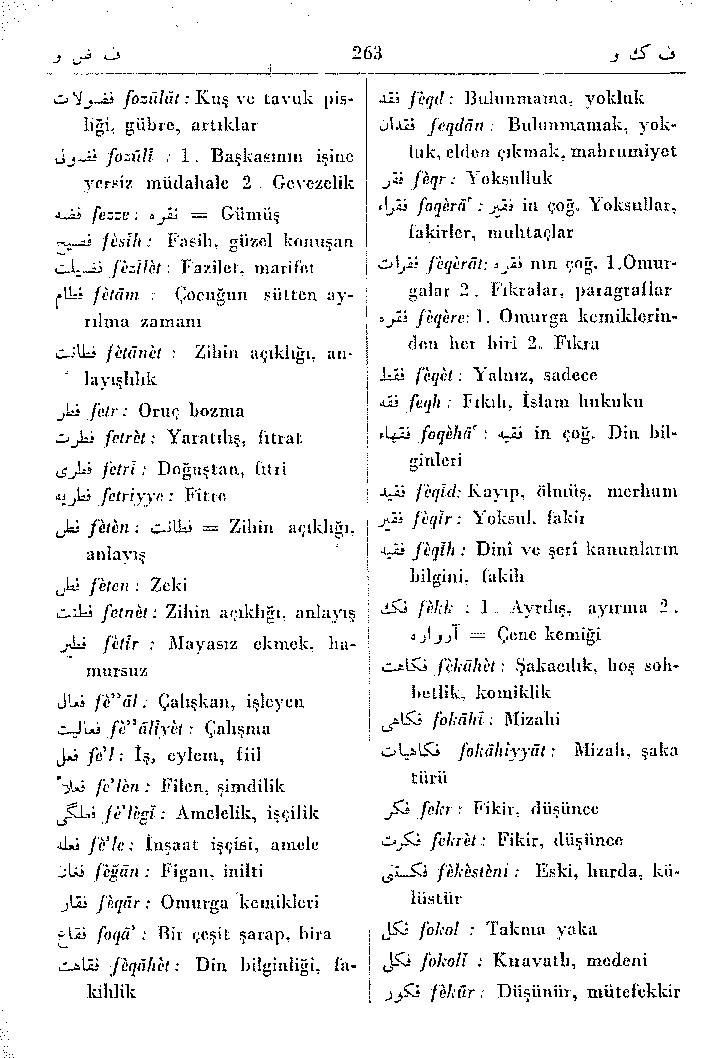 ف ض و
263
ف ك و
فضولات fozūlāt : Kuş ve tavuk pis-
liği, gübre, artıklar
فضولی fozūlī : 1. Başkasının işine
yersiz müdahale 2. Gevezelik
فضه fezze : نقره = Gümüş
فصیح fèsīh : Fasih, güzel konuşan
فضیلت fèzīlèt : Fazilet, marifet
فطام fètām : Çocuğun sütten ay-
rılma zamanı
فطانت fètānèt : Zihin açıklığı, an-
layışlılık
فطر fetr : Oruç bozma
فطرت fetrèt : Yaratılış, fıtrat
فطری fetrī : Doğuştan, fıtri
فطریه fetriyye : Fitre
فطن fètèn : فطانت = Zihin açıklığı,
anlayış
فطن fèten : Zeki
فطنت fetnèt : Zihin açıklığı, anlayış
فطیر fètīr : Mayasız ekmek, ha-
mursuz
فعال fè''āl : Çalışkan, işleyen
فعالیت fè''āliyèt : Çalışma
فعل fe'l : İş, eylem, fiil
فعلاً fe'lèn : Filen, şimdilik
فعلگی fè'lègī : Amelelik, işçilik
فعله fè'le : İnşaat işçisi, amele
فغان fèğān : Figan, inilti
فقار fèqār : Omurga kemikleri
فقاع foqā' : Bir çeşit şarap, bira
فقاهت fèqāhèt : Din bilginliği, fa-
kihlik
فقد fèqd : Bulunmama, yokluk
فقدان feqdān : Bulunmamak, yok-
luk, elden çıkmak, mahrumiyet
فقر fèqr : Yoksulluk
فقراء foqèrā' : فقیر in çoğ. Yoksullar,
fakirler, muhtaçlar
فقرات feqèrāt: فقره nın çoğ. 1.Omur-
galar 2. Fıkralar, paragraflar
فقره feqère: 1. Omurga kemiklerin-
den her biri 2. Fıkra
فقط fèqèt : Yalnız, sadece
فقه feqh : Fıkıh, İslam hukuku
فقهاء foqèhā' : فقیه in çoğ. Din bil-
ginleri
فقید fèqīd: Kayıp, ölmüş, merhum
فقیر fèqīr : Yoksul, fakir
فقیه fèqīh : Dinî ve şerî kanunların
bilgini, fakih
فك fèkk : 1. Ayrılış, ayırma 2.
آرواره = Çene kemiği
فكاهت fèkāhèt : Şakacılık, hoş soh-
betlik, komiklik
فكاهی fokāhī : Mizahi
فكاهیات fokāhiyyāt : Mizah, şaka
türü
فكر fekr : Fikir, düşünce
فكرت fekrèt : Fikir, düşünce
فكستنی fèkèstèni : Eski, hurda, kü-
lüstür
فكل fokol : Takma yaka
فكلی fokolī : Kravatlı, medeni
فكور fèkūr : Düşünür, mütefekkir